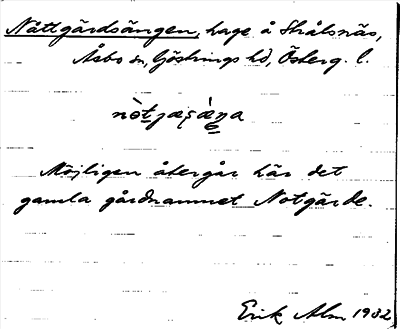 Nåttgärdsängen, hage å Strålsnäs,
Åsbo sn, Göstrings hd, Österg. l.
Möjligen återgår här det
gamla gårdnamnet Notgärde.
Erik Alm 1932